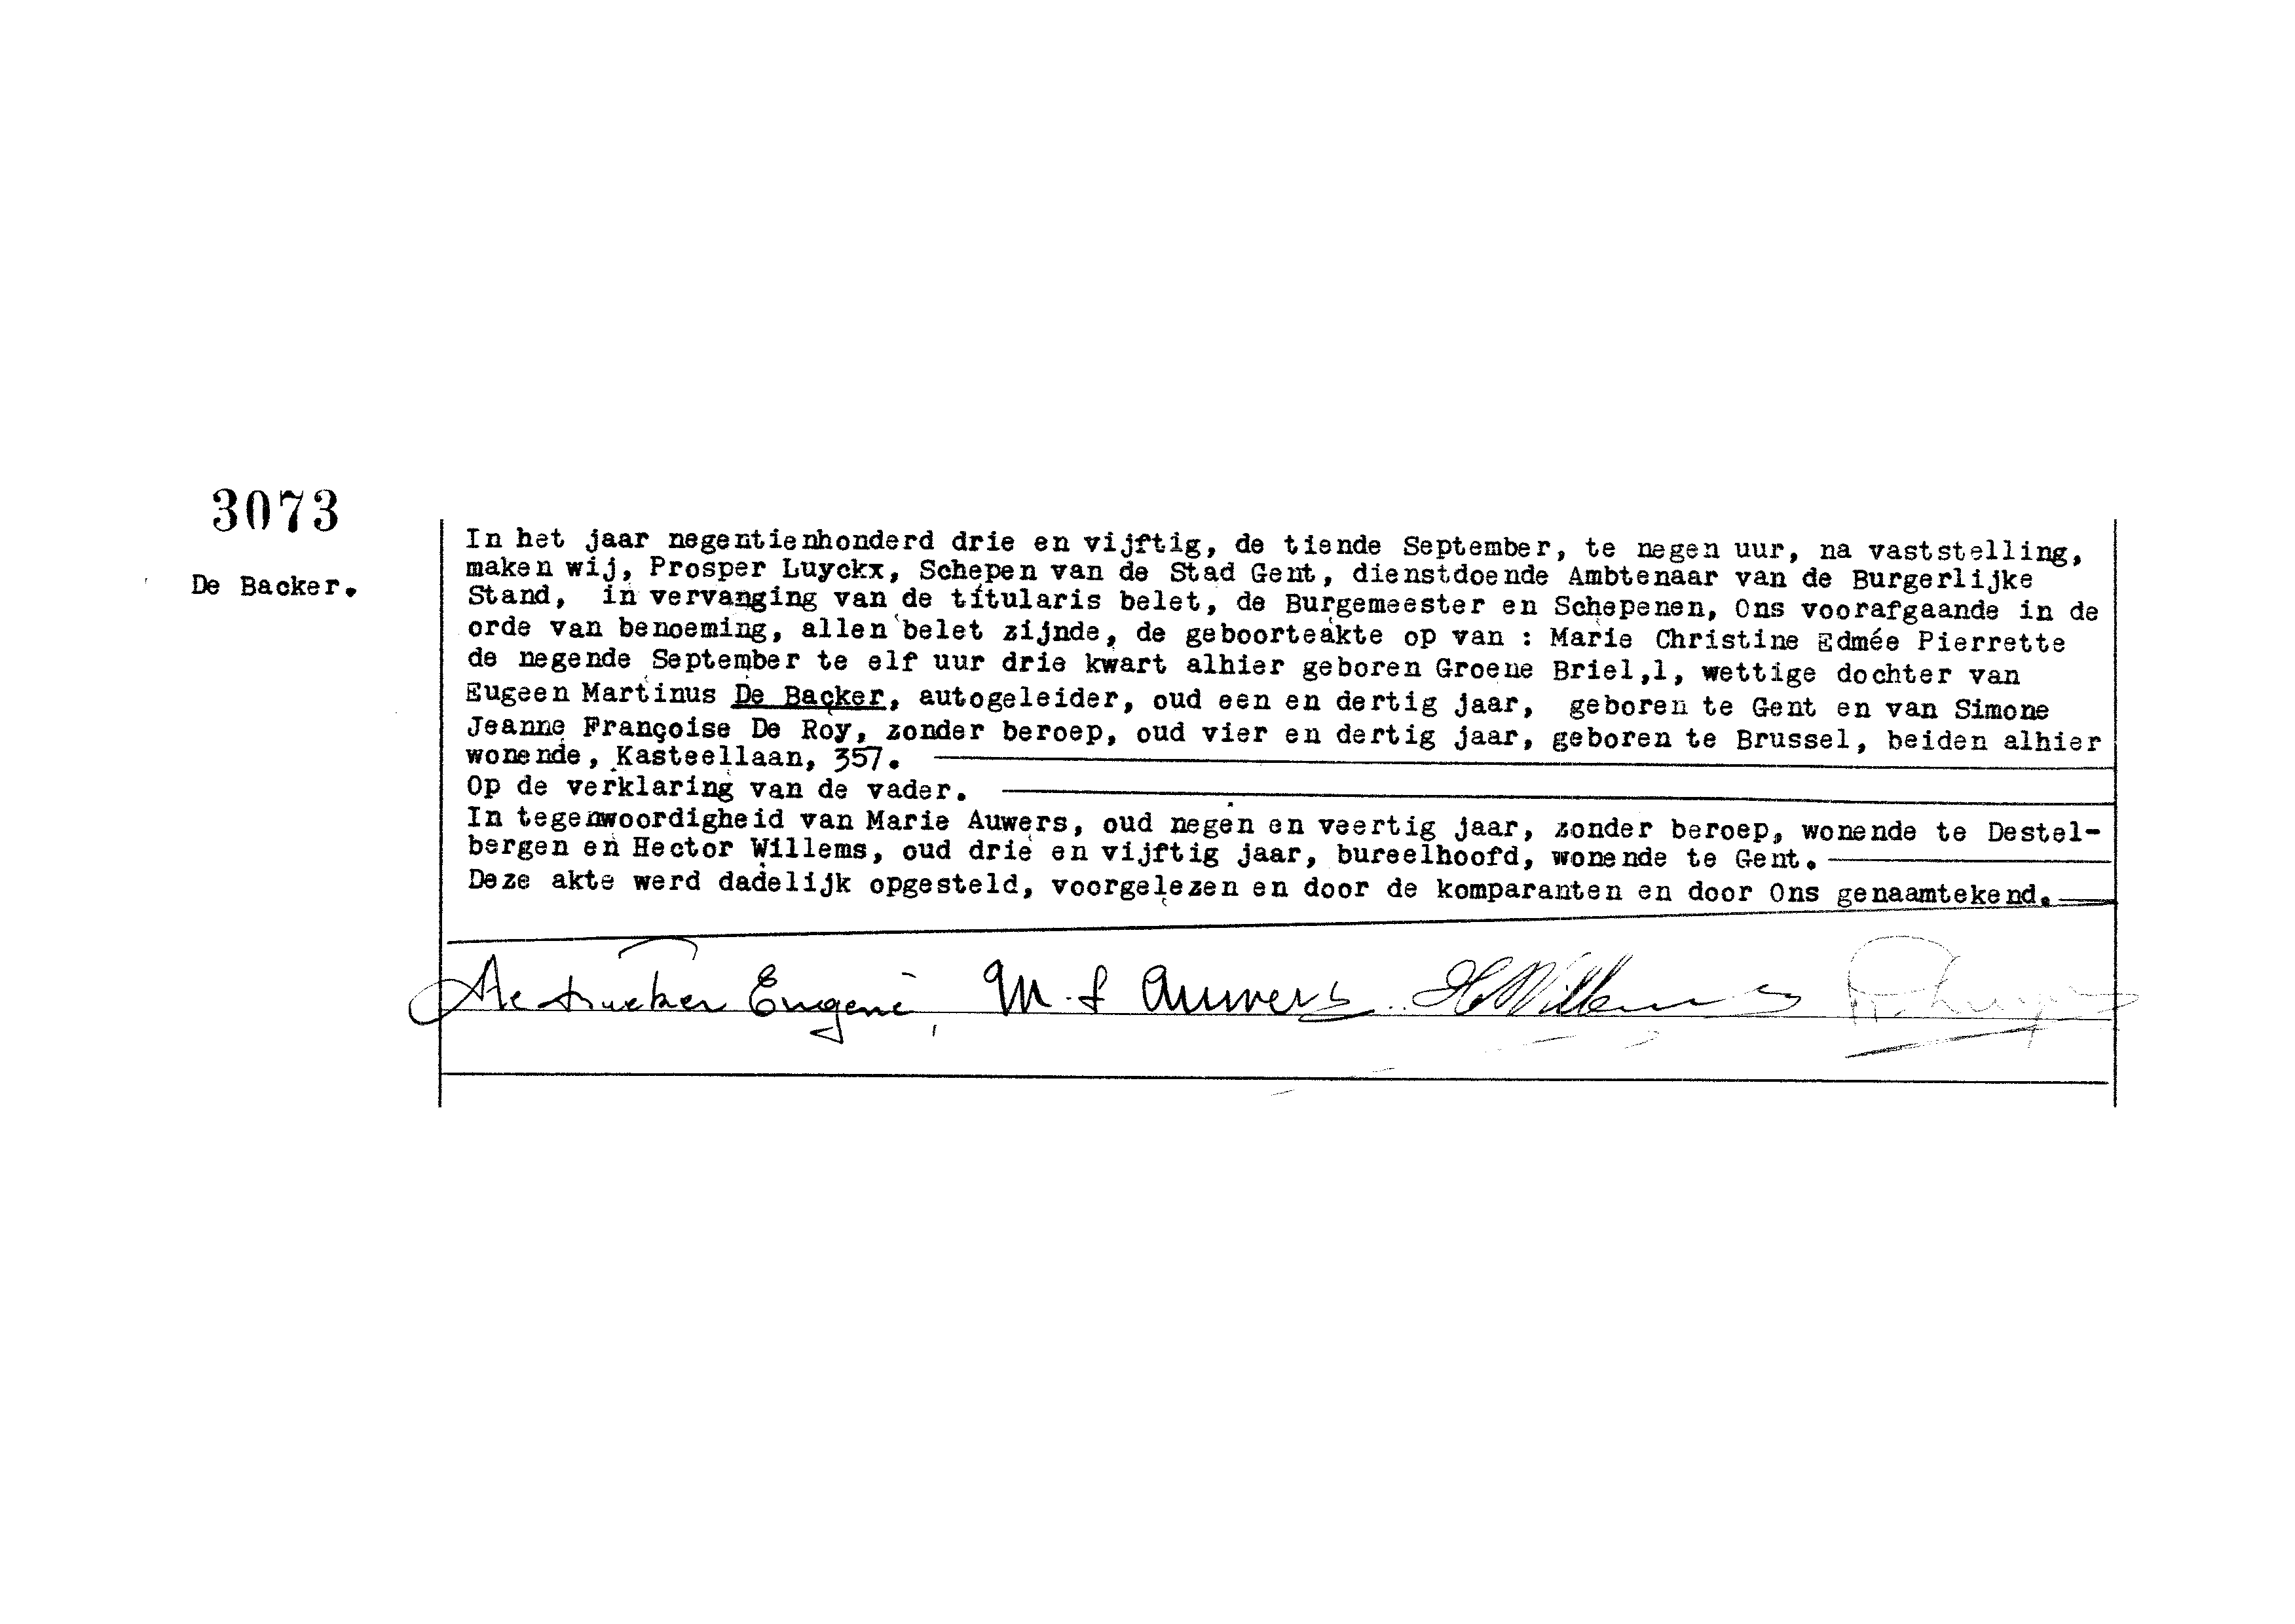 3073
De Backer.
In het jaar negentienhonderd drie en vijftig, de tiende September, te negen uur, na vaststelling,
maken wij, Prosper Luyckx, Schepen van de Stad Gent, dienstdoende Ambtenaar van de Burgerlijke
Stand, in vervanging van de titularis belet, de Burgemeester en Schepenen, Ons voorafgaande in de
orde van benoeming, allen belet zijnde, de geboorteakte op van : Marie Christine Edmée Pierrette
de negende September te elf uur drie kwart alhier geboren Groene Briel,1, wettige dochter van
Eugeen Martinus De Backer, autogeleider, oud een en dertig jaar, geboren te Gent en van Simone
Jeanne Françoise De Roy, zonder beroep, oud vier en dertig jaar, geboren te Brussel, beiden alhier
wonende, Kasteellaan, 357.
Op de verklaring van de vader.
In tegenwoordigheid van Marie Auwers, oud negen en veertig jaar, zonder beroep, wonende te Destel-
bergen en Hector Willems, oud drie en vijftig jaar, bureelhoofd, wonende te Gent.
Deze akte werd dadelijk opgesteld, voorgelezen en door de komparanten en door Ons genaamtekend.
De Backer Eugene, M. Auwers HWillems